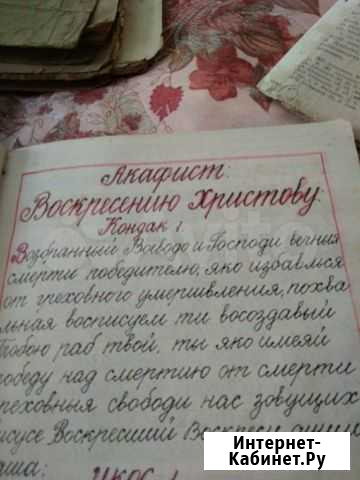 Акафист:
Воскресению Христову:
Кондак 1.
Возбранный Воеводо и Господи вечния
смерти победителю, яко избавлься
от греховного умерщвления, похва
льная восписуем ти возсоздавый
Тобою раб твой, ты яко имеяй
победу над смертию от смерти
греховныя свободи нас зовущих
Иисусе Воскресший Воскреси души
наша:
Икос
Интернет-
Кабинет.Ру